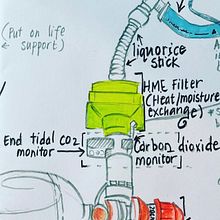 (Put on life
support)
liquorice
stick
HME Filter
(Heat/moisture
exchange)
End tidal CO2
monitor
Carbon dioxide
monitor